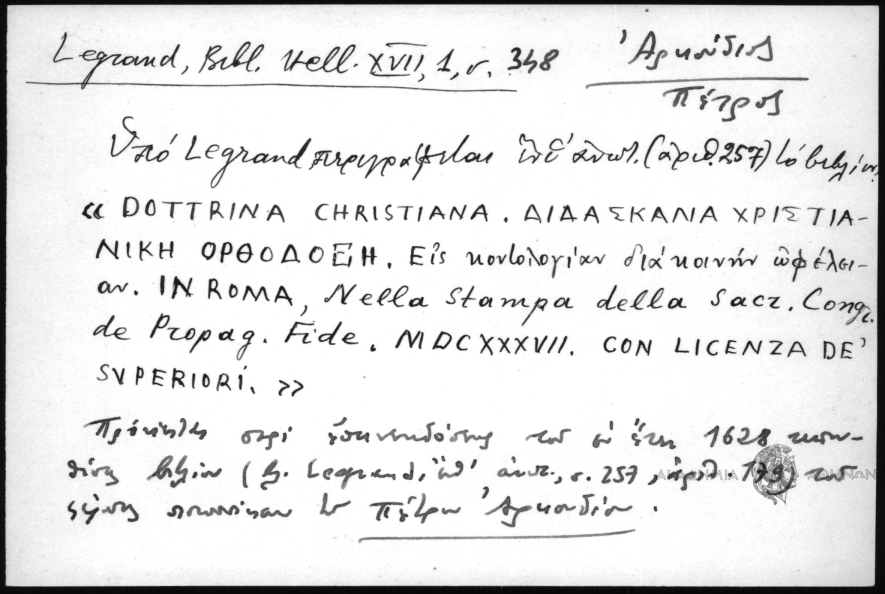 Legrand, Bibl. Hell. XVII, 1, σ. 348
Ἀρκούδιος
Πέτρος
Ὑπό Legrand περιγράφεται ὑπ' ἀριθ. (ἀριθ. 257) τό βιβλίον
« DOTTRINA CHRISTIANA. ΔΙΔΑΣΚΑΛΙΑ ΧΡΙΣΤΙΑ-
ΝΙΚΗ ΟΡΘΟΔΟΞΗ. Εἰς κοντολογίαν διά κοινήν ὠφέλει-
αν. IN ROMA, Nella Stampa della Sacr. Congr.
de Propag. Fide. MDCXXXVII. CON LICENZA DE'
SVPERIORI. »
Πρόκειται περί ἐπανεκδόσεως τοῦ ἐν ἔτει 1628 τυπω-
θέντος βιβλίου (βλ. Legrand, σ. 257, ἀριθ. 179) τοῦ
Πέτρου Ἀρκουδίου.